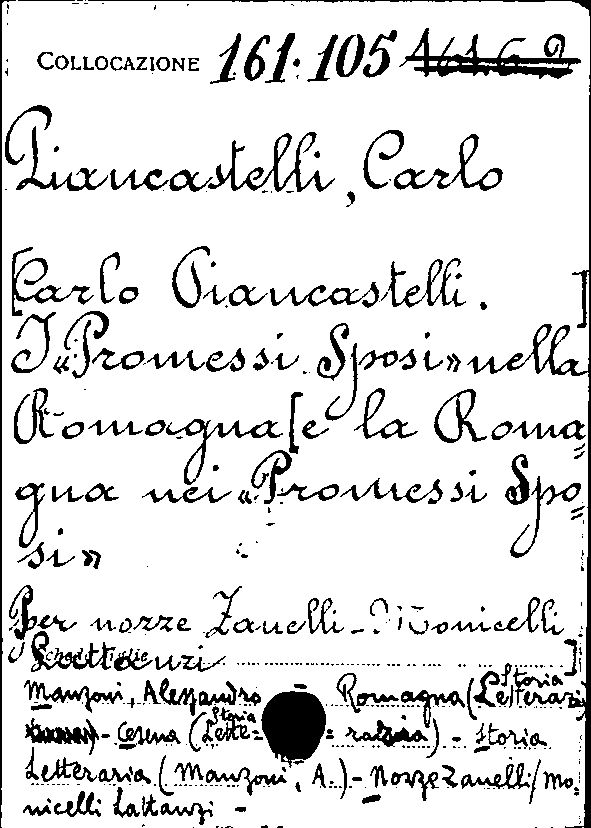 COLLOCAZIONE 161.105 161.6.2
Piancastelli, Carlo
[Carlo Piancastelli. ]
I «Promessi Sposi» nella
Romagna [e la Roma=
gna nei «Promessi Spo=
si»
Per nozze Zanelli-Monicelli
Lattanzi ]
Manzoni, Alessandro Romagna (Storia Letteraria)
- Cesena (Storia Lette= raria) - Storia
Letteraria (Manzoni, A.) - Nozze Zanelli/Mo=
nicelli Lattanzi -